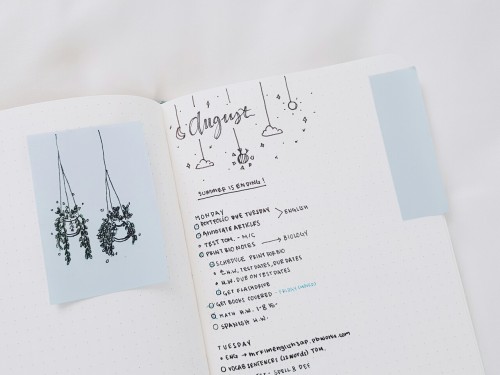 august
SUMMER IS ENDING!
MONDAY
PORTFOLIO DUE TUESDAY > ENGLISH
ANNOTATE ARTICLES
TEST TOM. - M/C
PRINT BIO NOTES → BIOLOGY
SCHEDULE PRINT FOR BIO
T.H.W, TEST DATES, DUE DATES
H.W. DUE ON TEST DATES
GET FLASHDRIVE
GET BOOKS COVERED -
MATH H.W. 1-8
SPANISH H.W.
TUESDAY
ENG →
VOCAB SENTENCES (15 WORDS) TOM.
TEST: SPELL & DEF